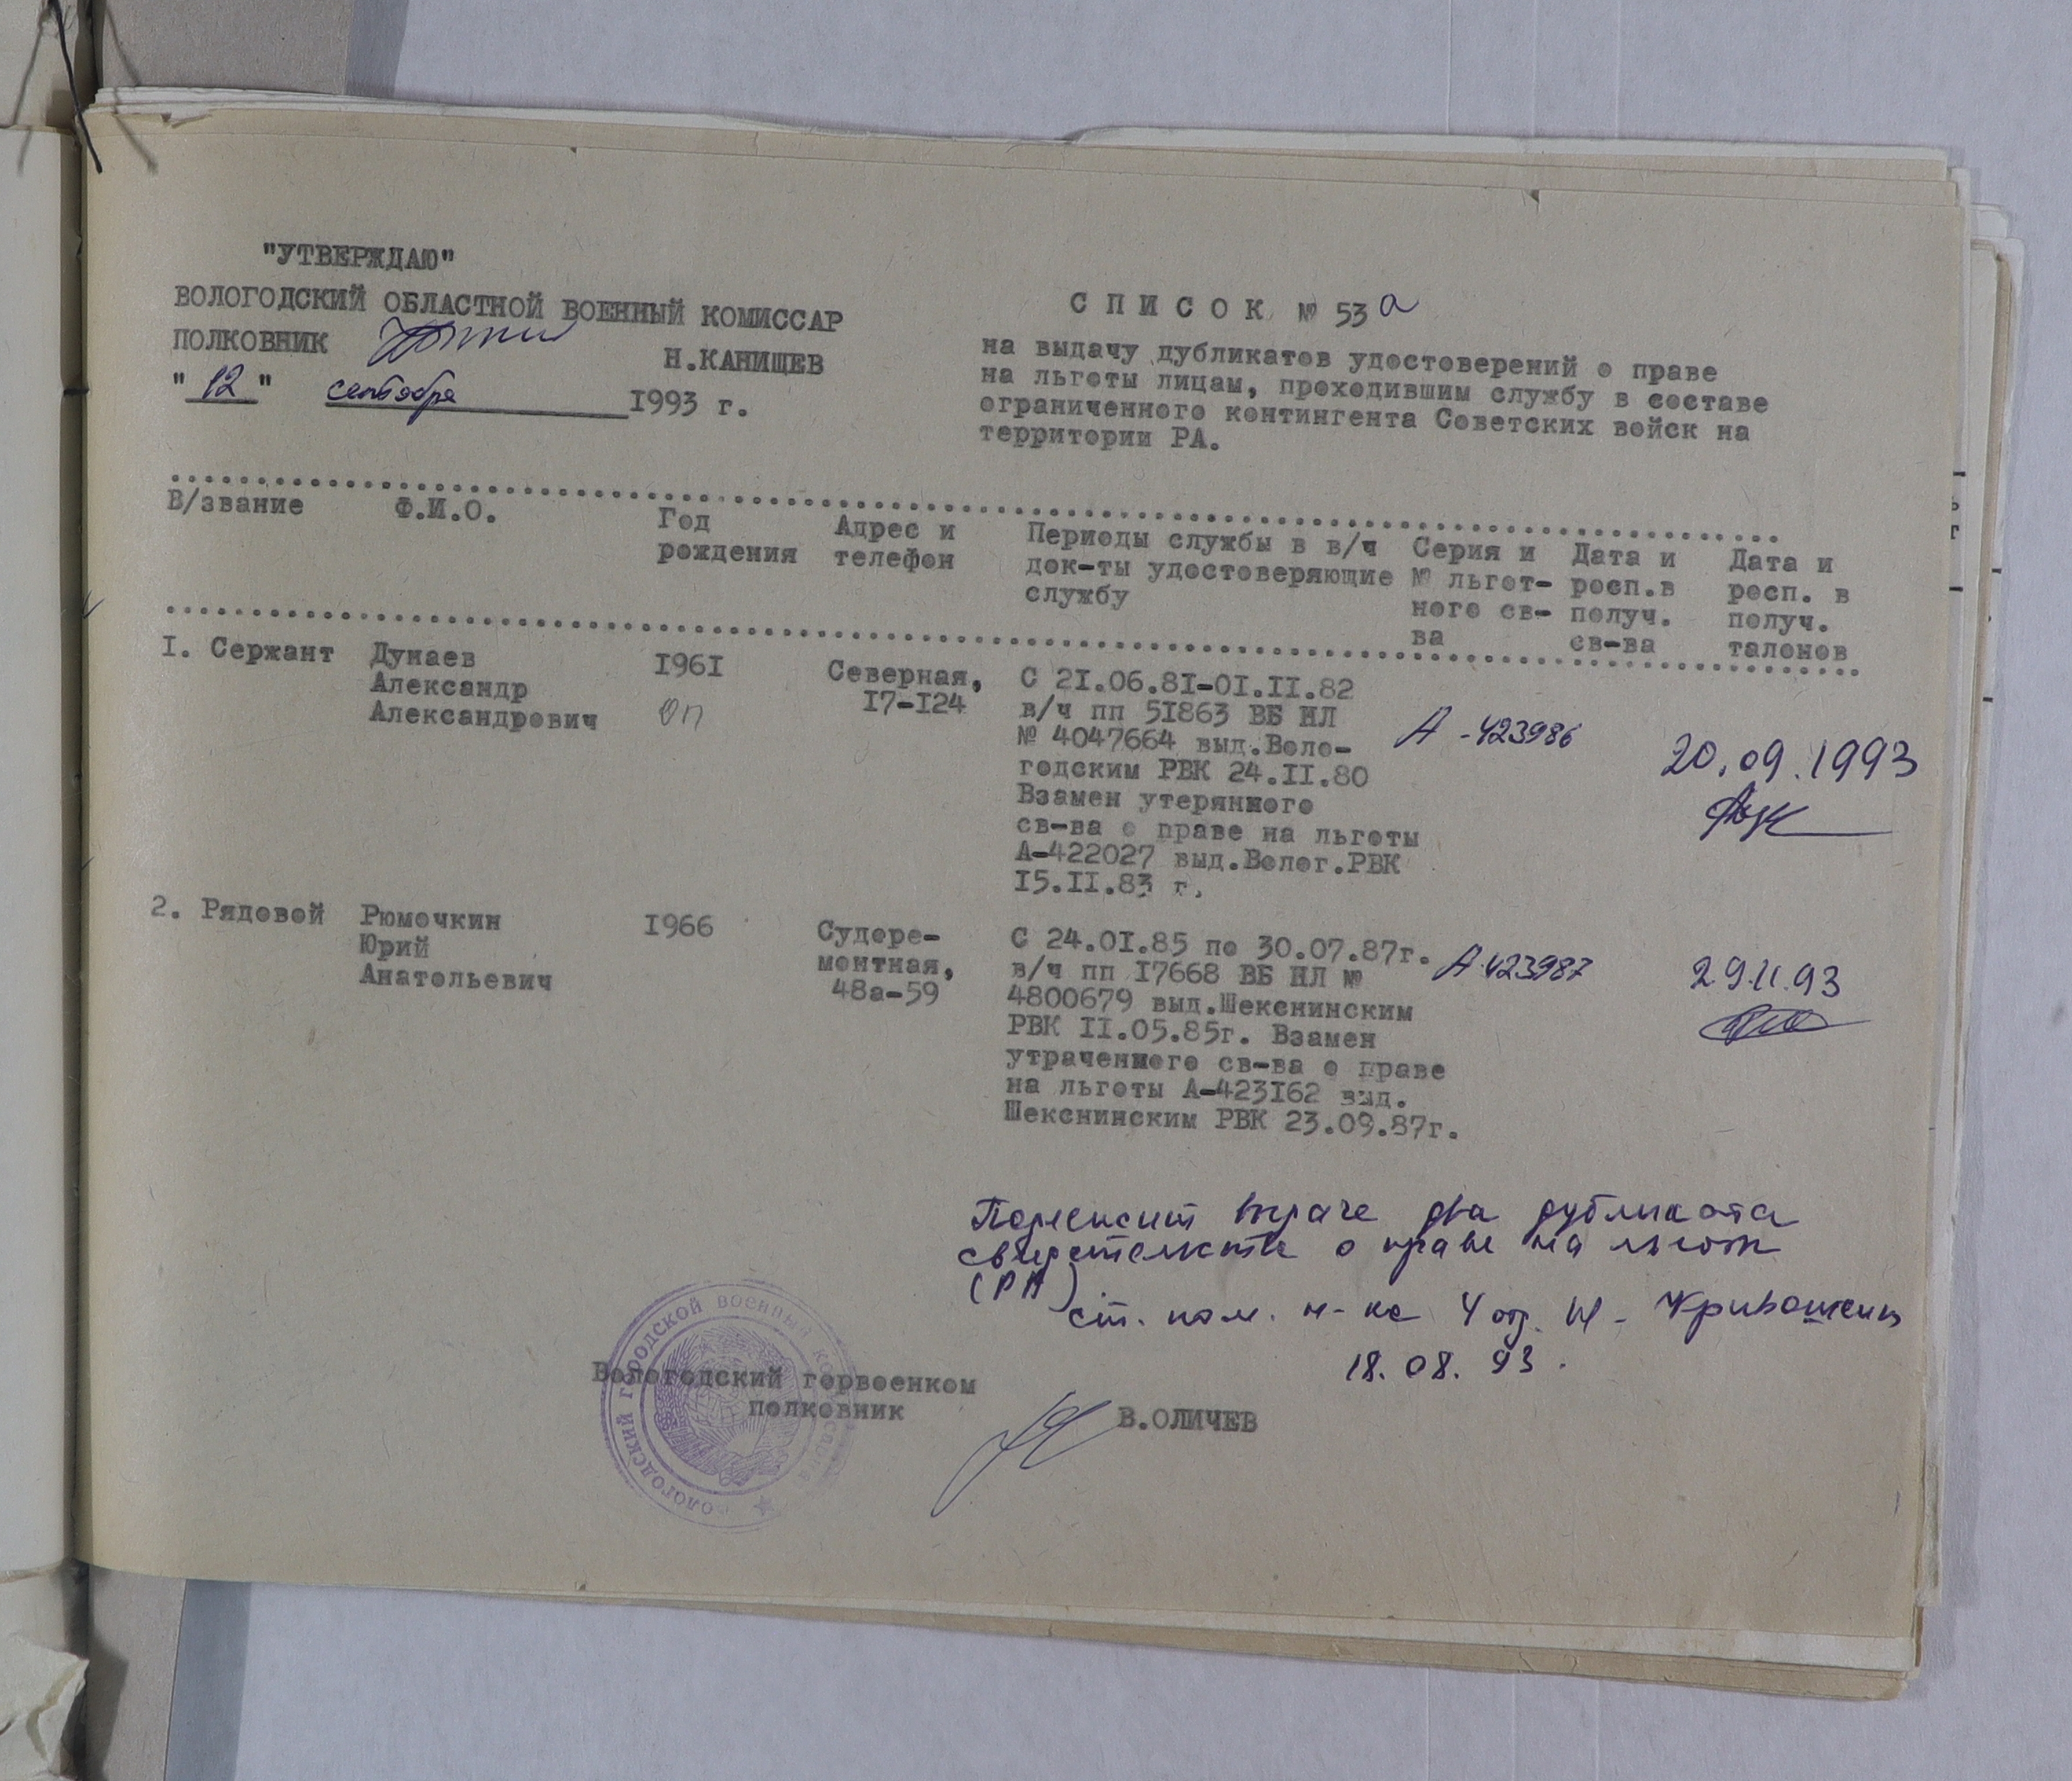 "УТВЕРЖДАЮ"
ВОЛОГОДСКИЙ ОБЛАСТНОЙ ВОЕННЫЙ КОМИССАР
ПОЛКОВНИК Н.КАНИЩЕВ
"12" сентября 1993 г.
С П И С О К № 53 а
на выдачу дубликатов удостоверений о праве
на льготы лицам, проходившим службу в составе
ограниченного контингента Советских войск на
территории РА.
В/звание Ф.И.О. Год рождения Адрес и телефон Периоды службы в в/ч док-ты удостоверяющие службу Серия и № льгот-ного св-ва Дата и росп.в получ. св-ва Дата и росп. в получ. талонов
I. Сержант Дунаев I96I Северная, С 2I.06.8I-0I.II.82
Александр I7-I24 в/ч пп 5I863 ВБ НЛ А-423986
Александрович оп № 4047664 выд.Воло- 20.09.1993
годским РВК 24.II.80
Взамен утерянного
св-ва о праве на льготы
А-422027 выд.Волог.РВК
I5.II.83 г.
2. Рядовой Рюмочкин I966 Судоре- С 24.0I.85 по 30.07.87г. А-423987
Юрий монтная, в/ч пп I7668 ВБ НЛ № 29.11.93
Анатольевич 48а-59 4800679 выд.Шекснинским
РВК II.05.85г. Взамен
утраченного св-ва о праве
на льготы А-423I62 выд.
Шекснинским РВК 23.09.87г.
Подлежит выдаче два дубликата
свидетельства о праве на льготы
(РА)
ст. пом. н-ка 4 отд. Кривошеин
18.08.93.
Вологодский горвоенком
полковник В.ОЛИЧЕВ
вологодский городской военный комиссариат